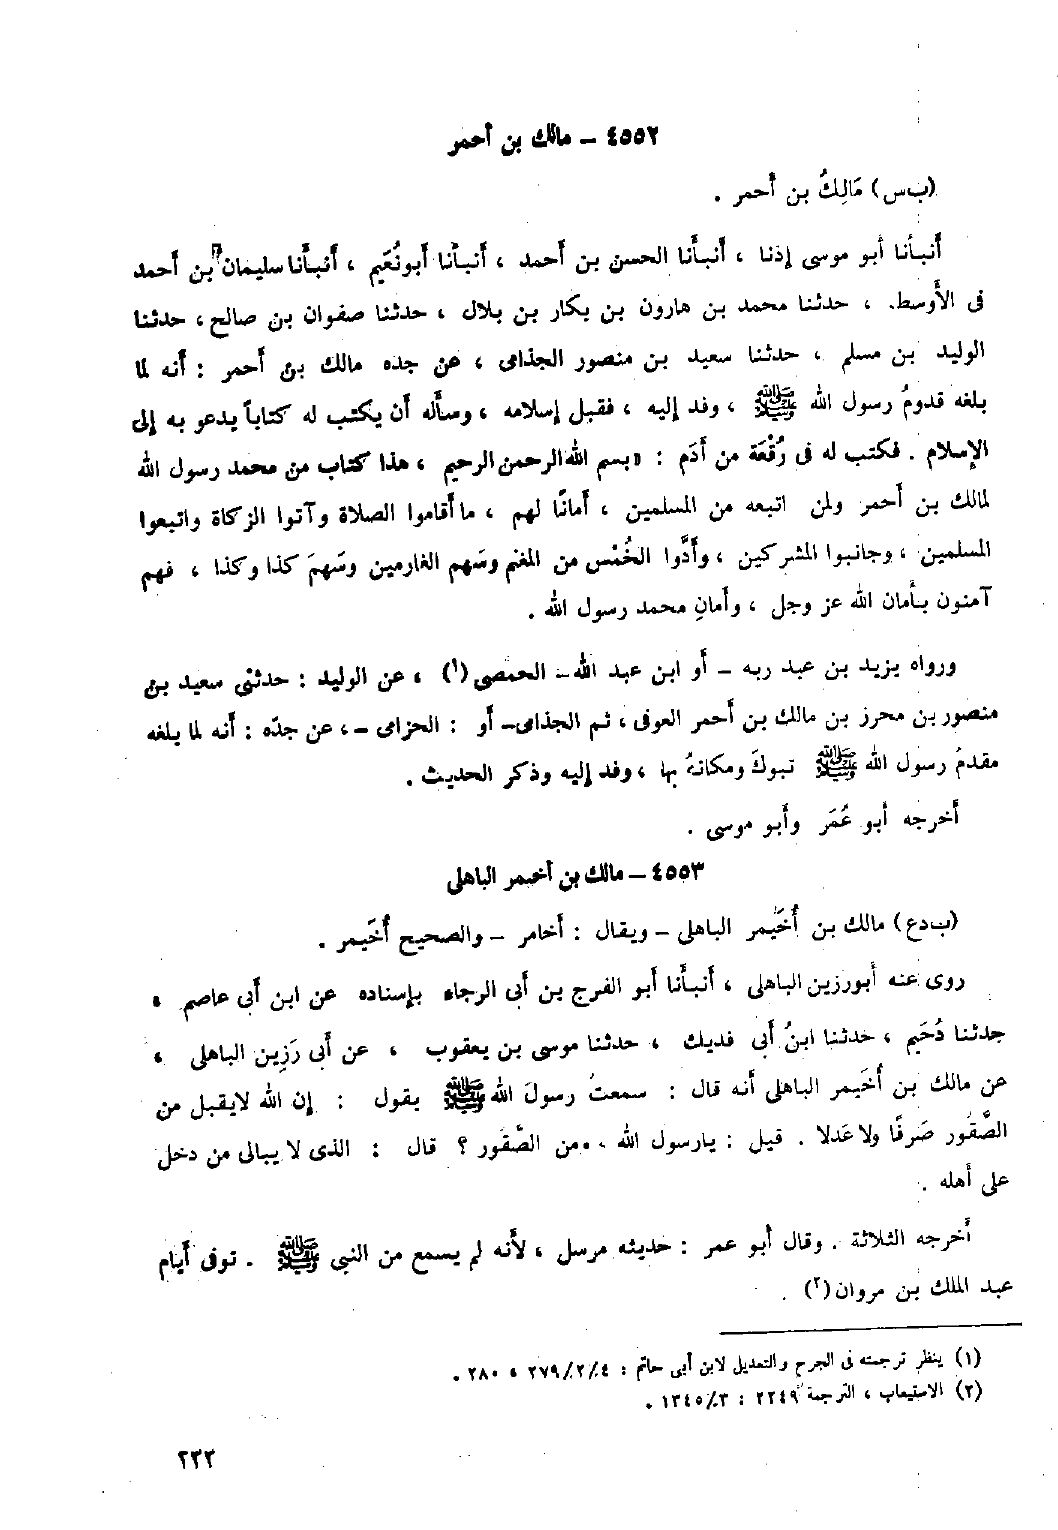 ٤٥٥٢ – مالك بن أحمر
(ب س) مَالِكُ بن أحمر .
أنبأنا أبو موسى إذنا ، أنبأنا الحسن بن أحمد ، أنبأنا أبو نُعَيم ، أنبأنا سليمان بن أحمد
فى الأوسط. ، حدثنا محمد بن هارون بن بكار بن بلال ، حدثنا صفوان بن صالح ، حدثنا
الوليد بن مسلم ، حدثنا سعيد بن منصور الجذامى ، عن جده مالك بن أحمر : أنه لما
بلغه قدومُ رسول الله ﷺ ، وفد إليه ، فقبل إسلامه ، وسأله أن يكتب له كتاباً يدعو به إلى
الإسلام . فكتب له فى رُقْعَة من أَدَم : «بسم الله الرحمن الرحيم ، هذا كتاب من محمد رسول الله
لمالك بن أحمر ولمن اتبعه من المسلمين ، أمانًا لهم ، ما أقاموا الصلاة وآتوا الزكاة واتبعوا
المسلمين ، وجانبوا المشركين ، وأَدَّوا الخُمْس من المغنم وسَهم الغارمين وسَهمَ كذا وكذا ، فهم
آمنون بأمان الله عز وجل ، وأمانِ محمد رسول الله .
ورواه يزيد بن عبد ربه – أو ابن عبد الله – الحمصى (١) ، عن الوليد : حدثنى سعيد بن
منصور بن محرز بن مالك بن أحمر العوفى ، ثم الجذامى – أو : الحزامى – ، عن جدّه : أنه لما بلغه
مقدمُ رسول الله ﷺ تبوكَ ومكانهُ بها ، وفد إليه وذكر الحديث .
أخرجه أبو عُمَر وأبو موسى .
٤٥٥٣ – مالك بن أخيمر الباهلى
(ب د ع) مالك بن أُخَيْمر الباهلى – ويقال : أخامر – والصحيح أُخَيمر .
روى عنه أبو رزين الباهلى ، أنبأنا أبو الفرج بن أبى الرجاء بإسناده عن ابن أبى عاصم ،
حدثنا دُحَيم ، حدثنا ابنُ أبى فديك ، حدثنا موسى بن يعقوب ، عن أبى رَزِين الباهلى ،
عن مالك بن أُخَيمر الباهلى أنه قال : سمعتُ رسولَ الله ﷺ يقول : إن الله لا يقبل من
الصَّقُور صَرفًا ولا عَدلا . قيل : يا رسول الله ، من الصَّقُور ؟ قال : الذى لا يبالى من دخل
على أهله .
أخرجه الثلاثة . وقال أبو عمر : حديثه مرسل ، لأنه لم يسمع من النبى ﷺ . توفى أيام
عبد الملك بن مروان (٢) .
(١) ينظر ترجمته فى الجرح والتعديل لابن أبى حاتم : ٤/٢/٢٧٩ ، ٢٨٠ .
(٢) الاستيعاب ، الترجمة ٢٢٤٩ : ٣/١٣٤٥ .
٢٣٢